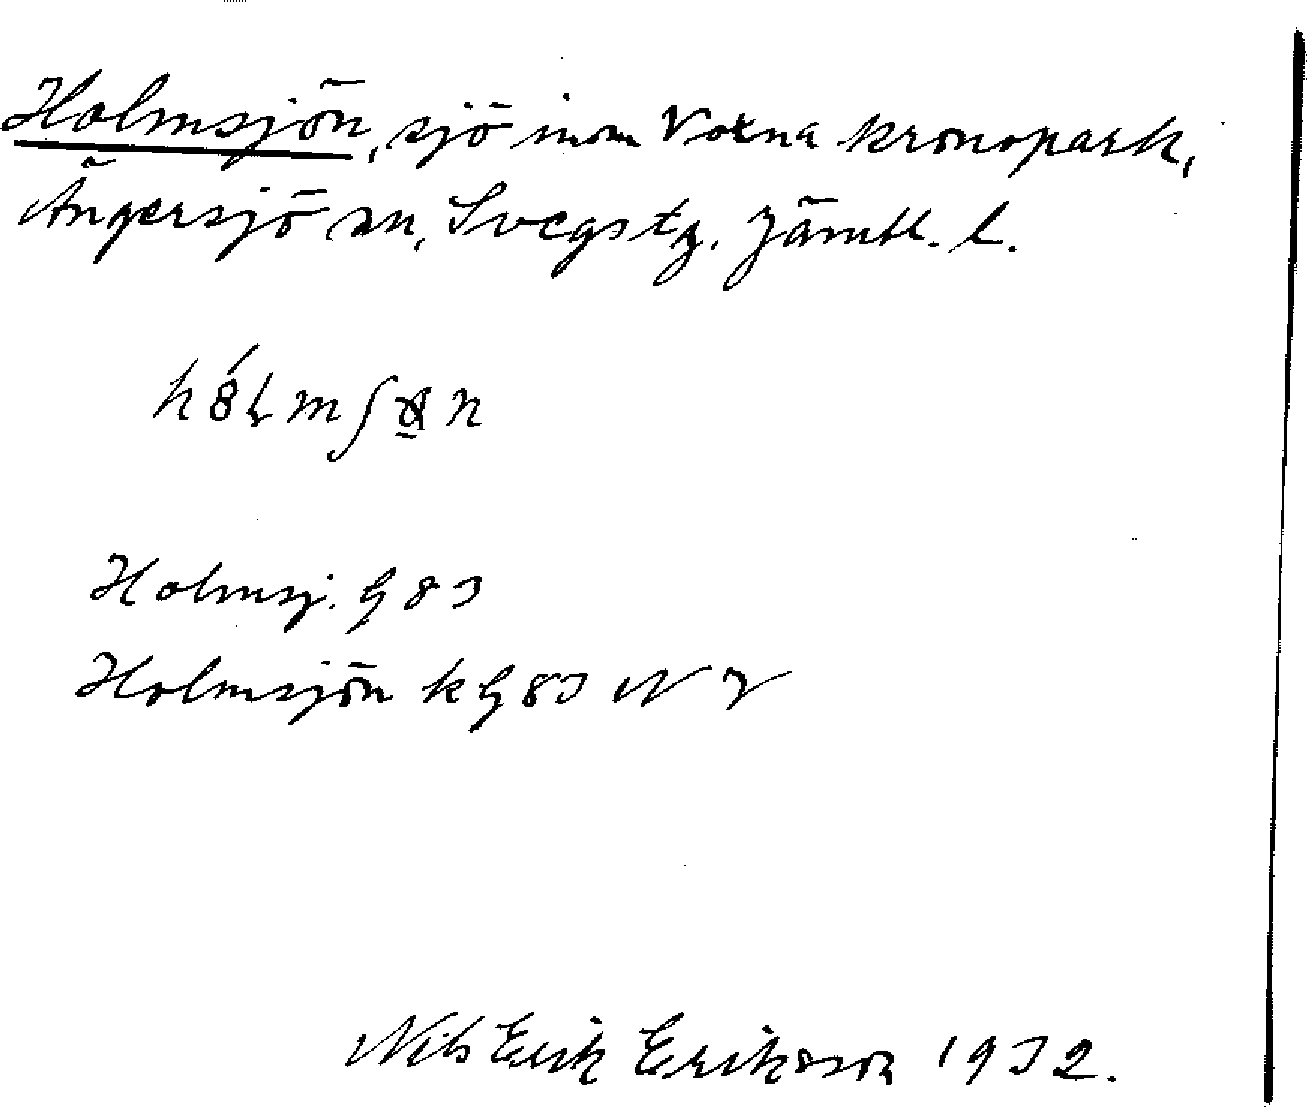 Holmsjön, sjö inom Voxna kronopark,
Ängersjö sn, Svegs tg. Jämtl. l.
Holmsj. G 83
Holmsjön k G 83 NV
Nils Erik Erikson 1932.